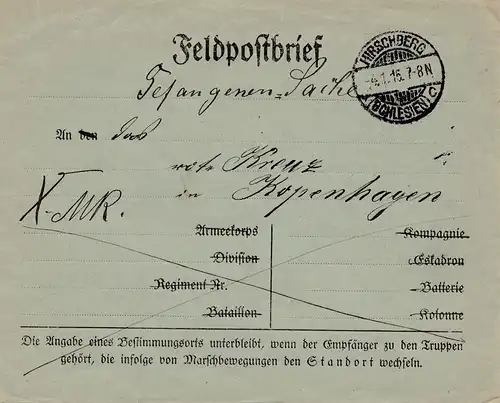 Feldpostbrief
HIRSCHBERG
1.15. 7-8N
(SCHLESIEN) C
Gefangenen-Sache
An den das
rote Kreuz
in Kopenhagen
X-MR.
Armeekorps
Division
Regiment Nr.
Bataillon
Kompagnie
Eskadron
Batterie
Kolonne
Die Angabe eines Bestimmungsorts unterbleibt, wenn der Empfänger zu den Truppen
gehört, die infolge von Marschbewegungen den Standort wechseln.